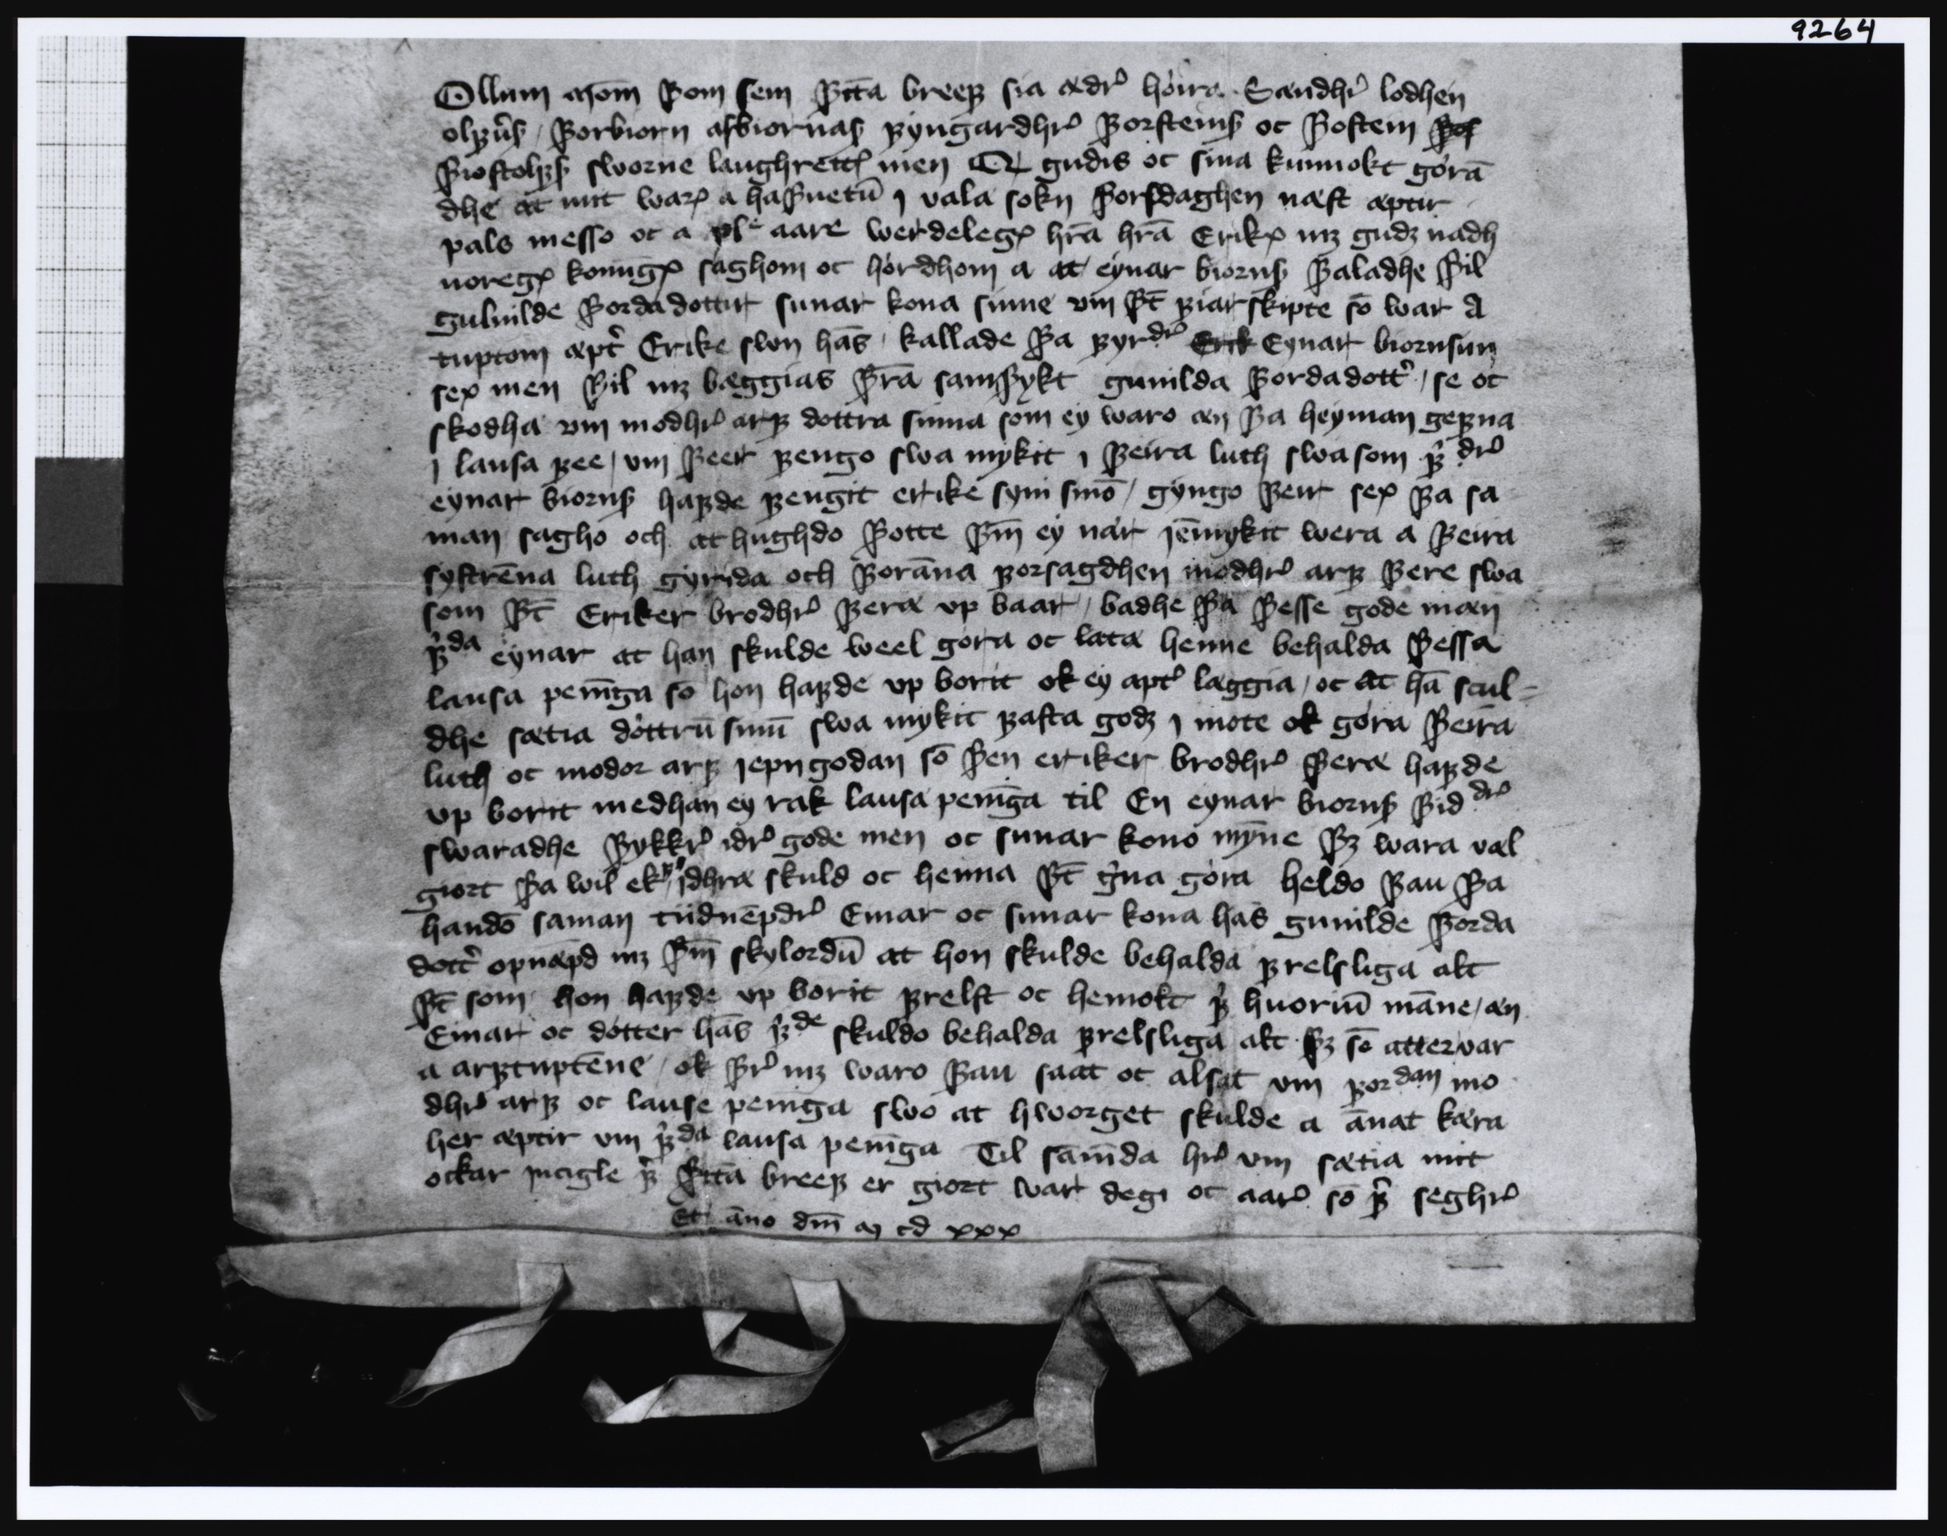 9264
Ollum monnom þom sem þetta breef sia ædr hoira Sændhr lodhen
þorbiorn asbiornas fyngardhr þorsteins oc þostein
sworne laughrett men Q gudis oc sina kunnokt gorā
dhe at mit war a haþuetū j vala sokn þorsdaghen næst æptir
pals messo oc a aare werdelegx hr̄a hr̄a Erikx mz gudz nadh
noregx konungx saghom oc hórdhom a at eynar biornss þaladhe þil
gulnilde þordadottir sunar kona sinne vm þt̄ fiarskipte so̅ war A
tuptom æpt Erike swn ha̅s kallade þa fyrdr Eynar biornsun
sex men þil mz bæggias þr̄a samþykt gunilda þordadott se oc
skodha vm modhr arf dottra sinna som ey waro æn þa heyman gefna
j lausa fee vm þeer fengo swa mykit j þeira luth swa som f dr
eynar biornss hafde fengit erike syni sino̅ gyngo þeir sex þa sa
man sagho och at hughdo þotte þm̄ ey nar je̅mykit wera a þeira
systre̅na luth gyrida och þora̅na forsagdhen modhr arf þere swa
som þt̄ Eriker brodhr þera vp baar badhe þa þesse gode mæn
f da eynar at han skulde weel gora oc lata henne behalda þessa
lausa penīga so̅ hon hafde vp borit ok ey æpt læggia oc at ha̅ scul=
dhe sætia dottrū sinū swa mykit fasta godz j mote ok góra þeira
luth oc modor arf jefngodan so̅ þen eriker brodhr þera hafde
vp borit medhan ey rak lausa penīga til En eynar biornss þid dr
swaradhe þykkr idr gode men oc sunar kono myne þz wara væl
giort þa wil ek jdhra skuld oc henna þt̄ g na góra heldo þau þa
hando̅ saman tiidnēfdr Einar oc sunar kona has gunilde þorda
dott opnæfd mz þm̄ skylordū at hon skulde behalda frelsliga alt
þt̄ som hon hafde vp borit frelst oc hemolt f huoriū mane æn
Einar oc dotter ha̅s f de skuldo behalda frelsliga alt þz se̅ atter var
a arftupte̅ne ok þr mz waro þau saat oc alsat vm fordan mo
dhr arf oc lause penīga swo at hworget skulde a a̅nat kæra
her æptir vm f da lausa penīga Til sa̅nīda hr vm sætia mit
ockar incigle f þtta breef er giort war degi oc aar so̅ f seghr
Et a̅no dm̄ m cd xxx